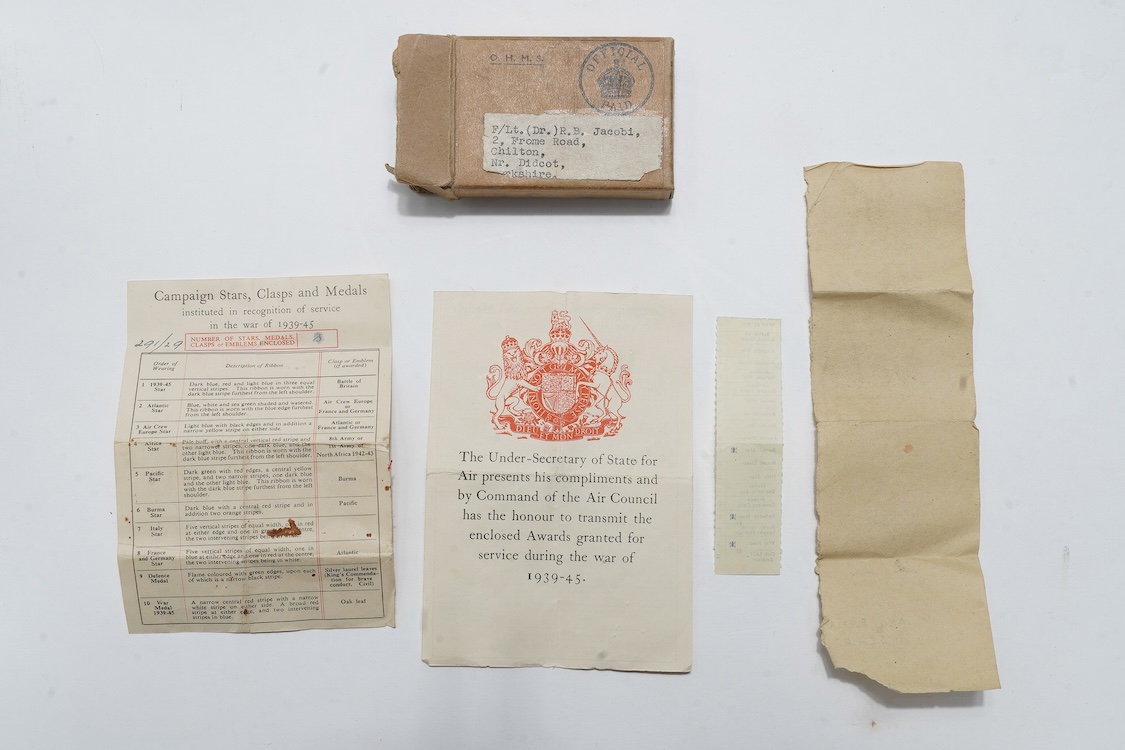 O. H. M. S.
OFFICIAL
PAID
F/Lt.(Dr.)R.B. Jacobi,
2, Frome Road,
Chilton,
Nr. Didcot,
rkshire.
Campaign Stars, Clasps and Medals
instituted in recognition of service
in the war of 1939-45
291/29
NUMBER OF STARS, MEDALS,
CLASPS or EMBLEMS ENCLOSED
3
Order of
Wearing
Description of Ribbon
Clasp or Emblem
(if awarded)
1 1939-45
Star
Dark blue, red and light blue in three equal
vertical stripes. This ribbon is worn with the
dark blue stripe furthest from the left shoulder.
Battle of
Britain
2 Atlantic
Star
Blue, white and sea green shaded and watered.
This ribbon is worn with the blue edge furthest
from the left shoulder.
Air Crew Europe
or
France and Germany
3 Air Crew
Europe Star
Light blue with black edges and in addition a
narrow yellow stripe on either side.
Atlantic or
France and Germany
4 Africa
Star
Pale buff, with a central vertical red stripe and
two narrower stripes, one dark blue, and the
other light blue. This ribbon is worn with the
dark blue stripe furthest from the left shoulder.
8th Army or
1st Army or
North Africa 1942-43
5 Pacific
Star
Dark green with red edges, a central yellow
stripe, and two narrow stripes, one dark blue
and the other light blue. This ribbon is worn
with the dark blue stripe furthest from the left
shoulder.
Burma
6 Burma
Star
Dark blue with a central red stripe and in
addition two orange stripes.
Pacific
7 Italy
Star
Five vertical stripes of equal width, one in red
at either edge and one in green at the centre,
the two intervening stripes being in white.
8 France
and Germany
Star
Five vertical stripes of equal width, one in
blue at either edge and one in red at the centre,
the two intervening stripes being in white.
Atlantic
9 Defence
Medal
Flame coloured with green edges, upon each
of which is a narrow black stripe.
Silver laurel leaves
(King's Commenda-
tion for brave
conduct. Civil)
10 War
Medal
1939-45
A narrow central red stripe with a narrow
white stripe on either side. A broad red
stripe at either edge, and two intervening
stripes in blue.
Oak leaf
DIEU ET MON DROIT
The Under-Secretary of State for
Air presents his compliments and
by Command of the Air Council
has the honour to transmit the
enclosed Awards granted for
service during the war of
1939-45.